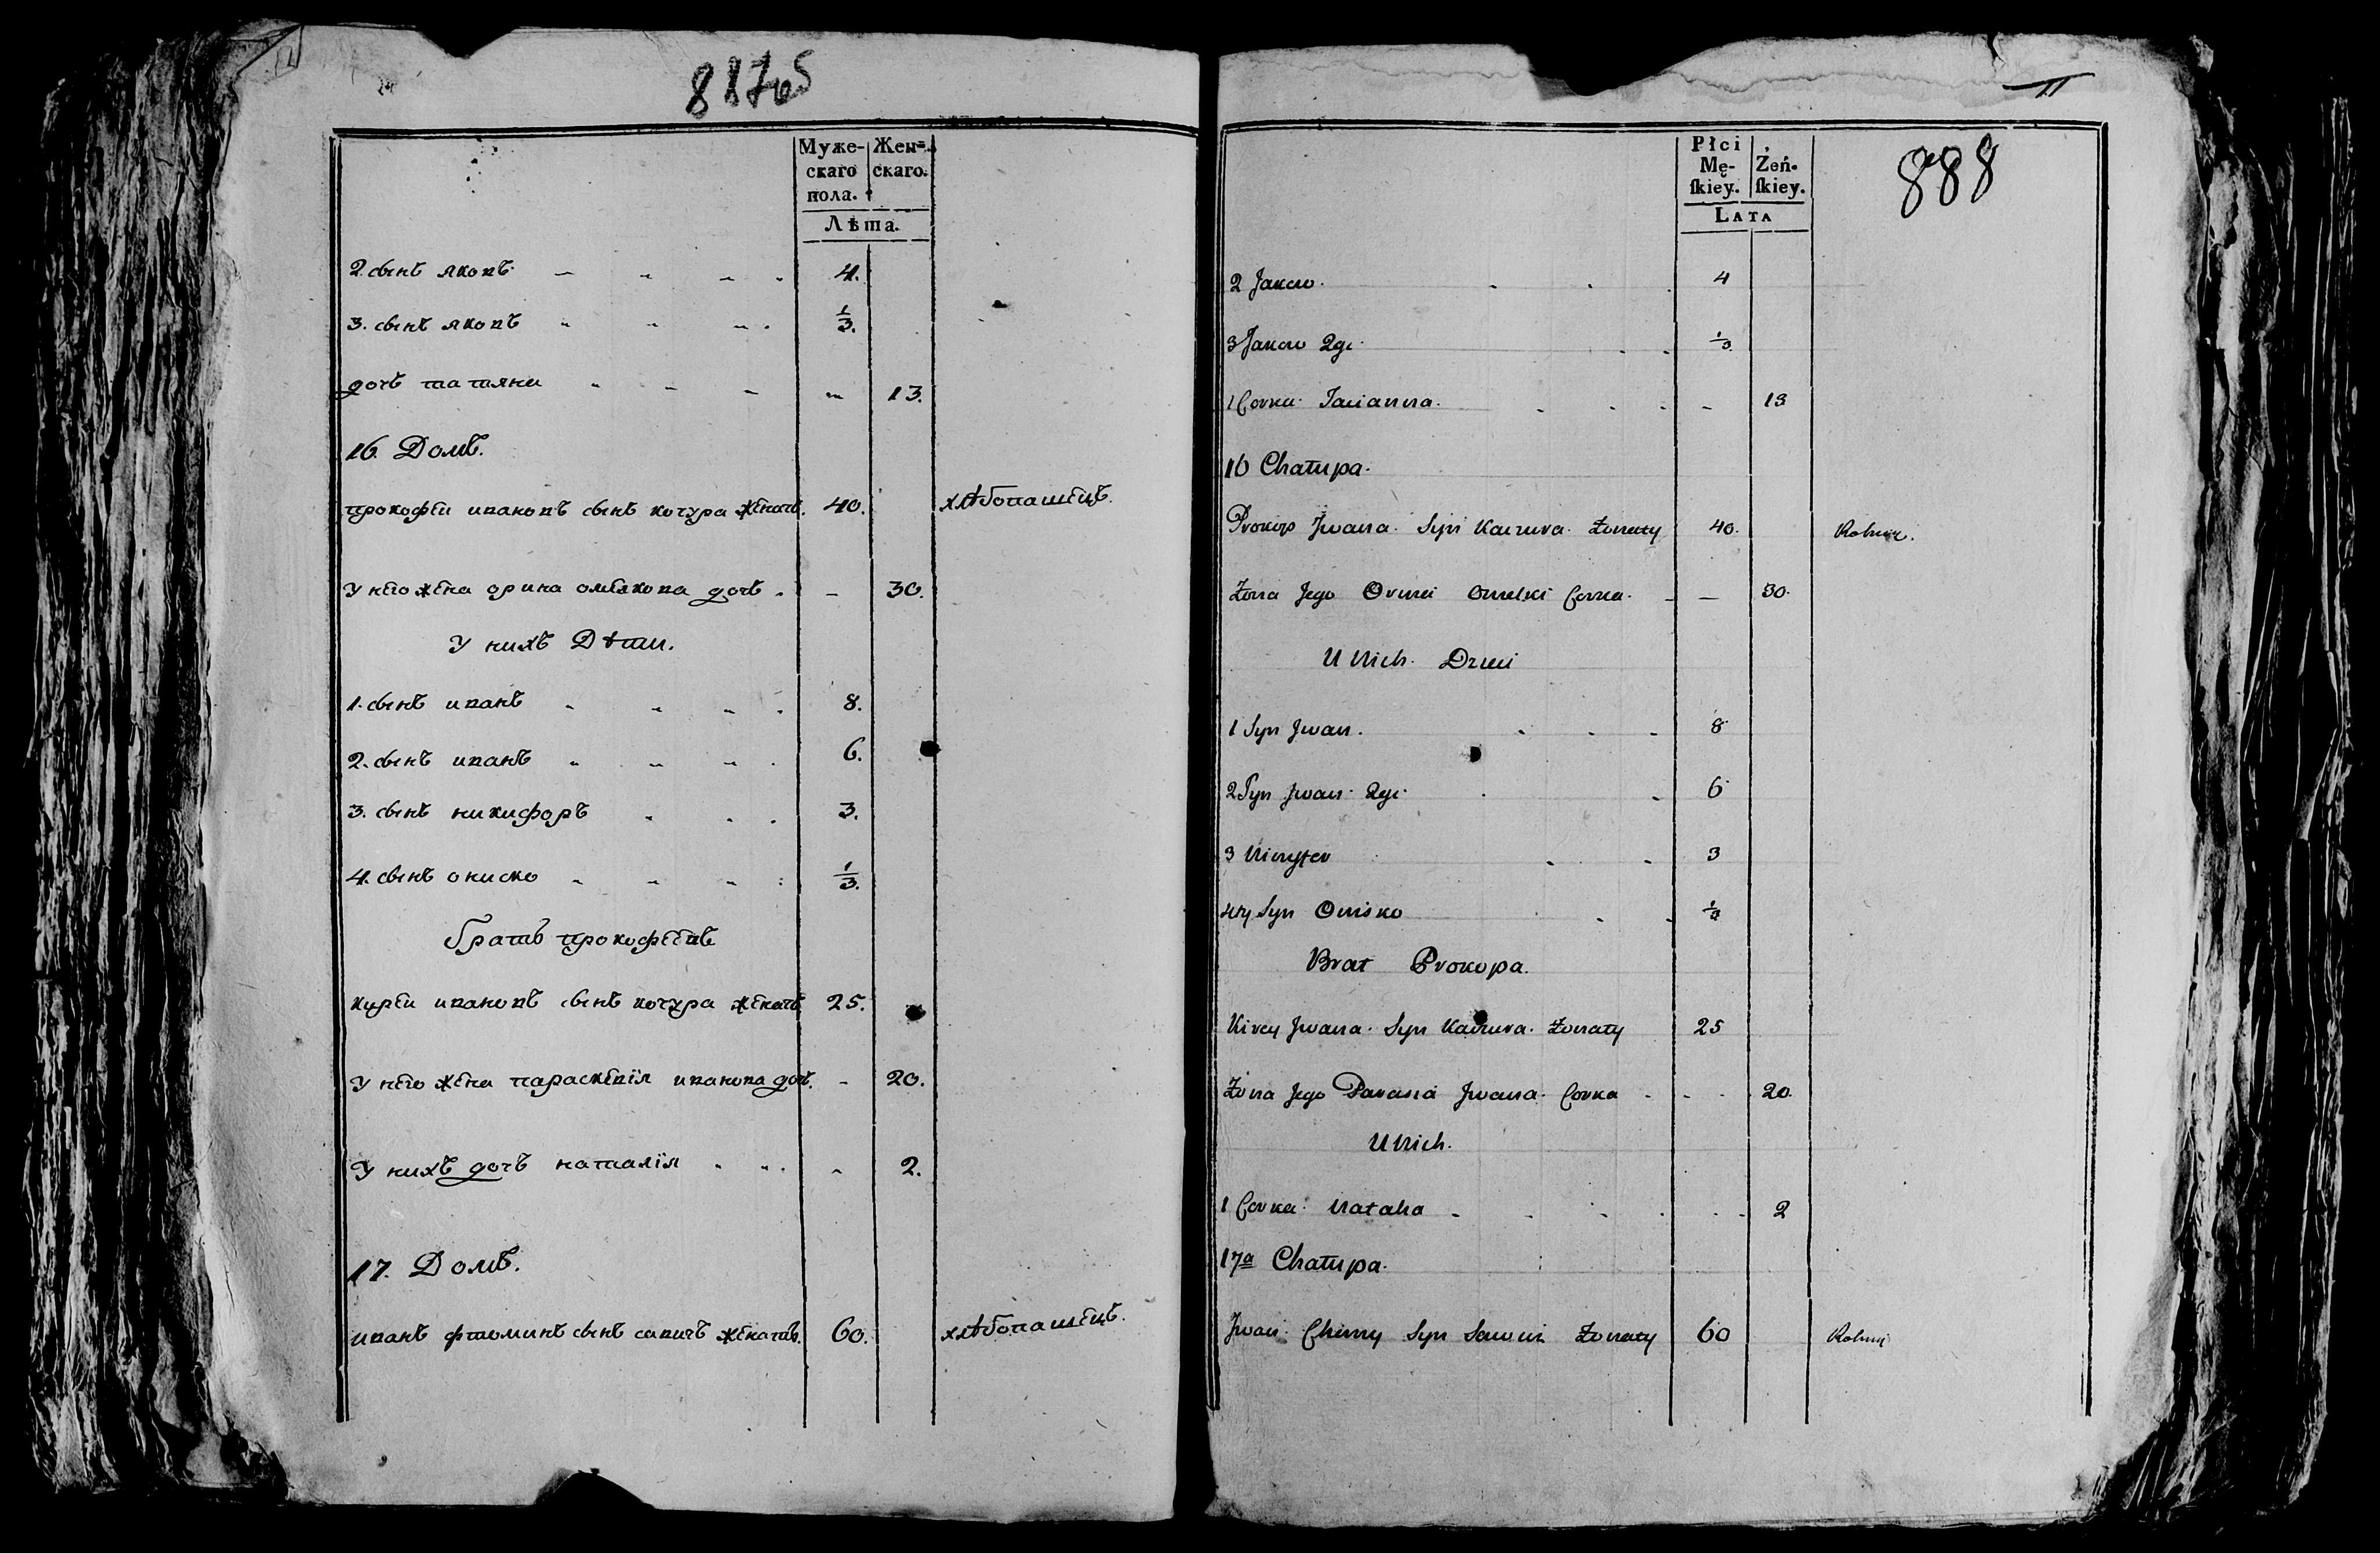 887об
Муже-
скаго
пола.
Жен-
скаго.
Лѣта.
2. сынъ яковъ 4.
3. сынъ яковъ 1/3.
дочь татяна 13.
16. Домъ.
прокофѣи ивановъ сынъ кочура женатъ. 40. хлѣбопашецъ.
У него жена орина омелкова дочь 30.
У нихъ Дѣти.
1. сынъ иванъ 8.
2. сынъ иванъ 6.
3. сынъ никифоръ 3.
4. сынъ ониско 1/3.
братъ прокофѣевъ
кирѣи ивановъ сынъ кочура женатъ 25.
У него жена параскевія иванова доч. 20.
У нихъ дочь наталія 2.
17. Домъ.
иванъ фтоминъ сынъ савичъ женатъ. 60. хлѣбопашецъ.
11
888
Płci
Mę-
skiey.
Żeń-
skiey.
LATA
2 Jakow 4
3 Jakow 2gi 1/3
1 Corka Tacianna 13
16 Chałupa.
Prokop Jwana Syn Kaczura Żonaty 40. Rolnik.
Żona Jego Orina Omelki Corka 30.
U Nich Dzieci
1 Syn Jwan. 8
2 Syn Jwan 2gi 6
3 Nikyfor 3
4ty Syn Onisko 1/3
Brat Prokopa.
Kirey Jwana Syn Kaczura Żonaty 25
Żona Jego Parasia Jwana Corka 20.
U Nich.
1 Corka Natalia 2
17a Chałupa.
Jwan Chimy Syn Sawicz Żonaty 60 Rolnik